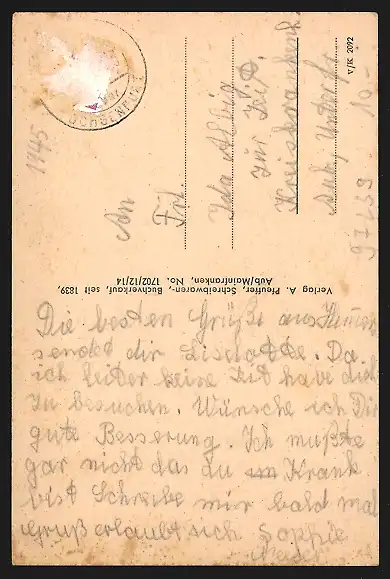 OCHSENFURT
1945
An
Frl.
Ida
zur Zeit.
Kreiskrankenh.
Aub, Unterfr.
97239 10-
V/K 2092
Verlag A. Pfeuffer, Schreibwaren-, Buchverkauf, seit 1839,
Aub/Mainfranken, No. 1702/12/14
Die besten Grüße aus
sendet dir Liselotte. Da
ich leider keine Zeit have dich
zu besuchen. Wünsche ich Dir
gute Besserung. Ich mußte
gar nicht das du Krank
bist Schreibe mir bald mal
Gruß erlaubt sich Sophie